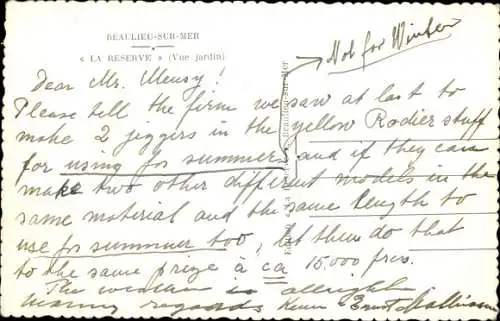 BEAULIEU-SUR-MER
« LA RESERVE » (Vue jardin)
Not for Winter
Dear Mr. Meusy!
Please tell the firm we saw at last to
make 2 jiggers in the yellow Rodier stuff
for using for summer and if they can
make two other different models in the
same material and the same length to
use for summer too, let them do that
to the same prize à ca 15.000 frcs.
The weather is allright
many regards Ernst
Beaulieu-sur-Mer